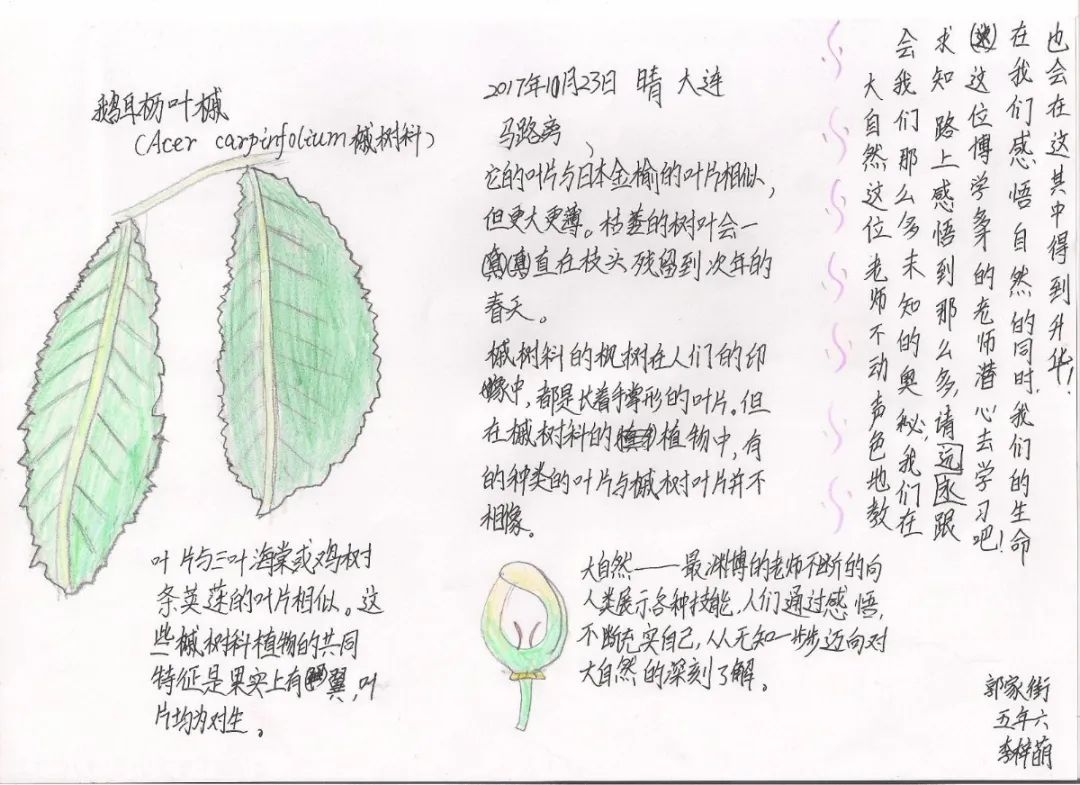 鹅耳枥叶槭
(Acer carpinfolium槭树科)
2017年10月23日 晴 大连
马路旁、
它的叶片与日本金榆的叶片相似,
但更大更薄。枯萎的树叶会一
直在枝头残留到次年的
春天。
槭树科的枫树在人们的印
象中,都是长着手掌形的叶片。但
在槭树科的植物中,有
的种类的叶片与槭树叶片并不
相像。
叶片与三叶海棠或鸡树
条英莲的叶片相似。这
些槭树科植物的共同
特征是果实上有翼,叶
片均为对生。
大自然——最渊博的老师不断的向
人类展示各种技能,人们通过感悟,
不断充实自己,从无知一步步迈向对
大自然的深刻了解。
大自然这位老师不动声色地教
会我们那么多未知的奥秘,我们在
求知路上感悟到那么多,请跟
这位博学多才的老师潜心去学习吧!
在我们感悟自然的同时,我们的生命
也会在这其中得到升华!
郭家街
五年六
李梓萌